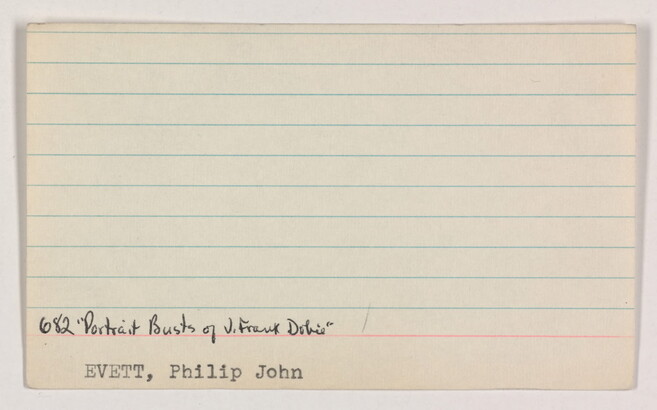 682 "Portrait Busts of J. Frank Dobie"
EVETT, Philip John